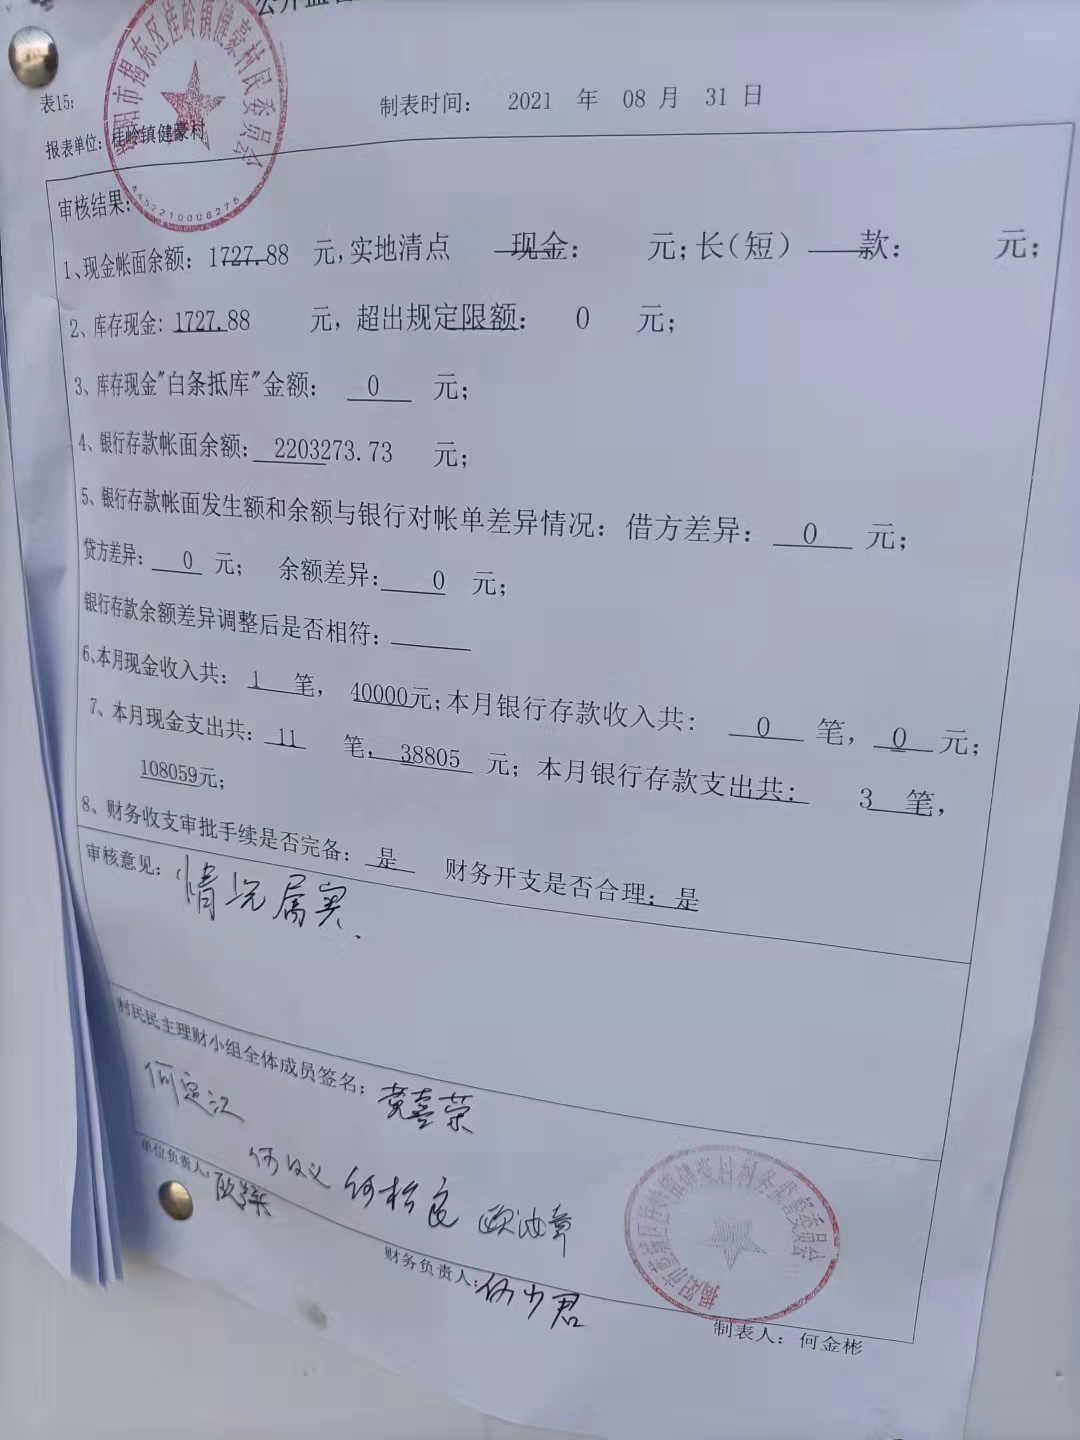 表15:
制表时间： 2021 年 08 月 31 日
报表单位：桂岭镇健豪村
揭阳市揭东区桂岭镇健豪村民委员会
4452210006275
审核结果:
1、现金帐面余额：1727.88 元,实地清点 现金： 元;长(短) 款： 元;
2、库存现金：1727.88 元，超出规定限额： 0 元;
3、库存现金"白条抵库"金额： 0 元;
4、银行存款帐面余额： 2203273.73 元;
5、银行存款帐面发生额和余额与银行对帐单差异情况：借方差异： 0 元;
贷方差异： 0 元; 余额差异： 0 元;
银行存款余额差异调整后是否相符：
6、本月现金收入共： 1 笔， 40000元;本月银行存款收入共： 0 笔， 0 元;
7、本月现金支出共： 11 笔， 38805 元; 本月银行存款支出共： 3 笔，
108059元;
8、财务收支审批手续是否完备： 是 财务开支是否合理： 是
审核意见： 情况属实.
村民民主理财小组全体成员签名： 黄喜荣
何定江
何松
单位负责人：
财务负责人：何少君
制表人： 何金彬